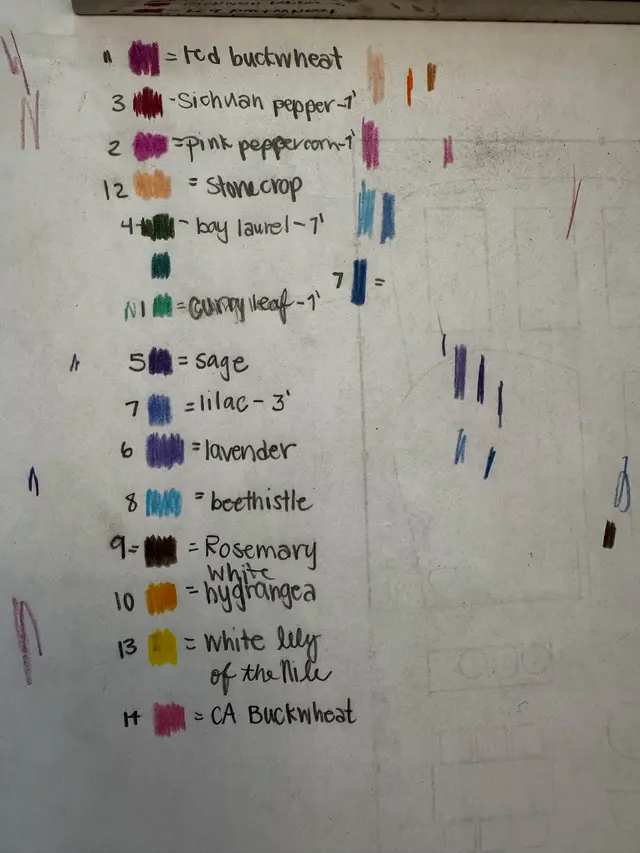 11 = red buckwheat
3 - Sichuan pepper - 1'
2 = pink peppercorn - 1'
12 = stonecrop
4 - bay laurel - 1'
7 =
N1 = curry leaf - 1'
5 = sage
7 = lilac - 3'
6 = lavender
8 = beethistle
9 = = Rosemary
white
10 = hygrangea
13 = white lily
of the Nile
14 = CA Buckwheat